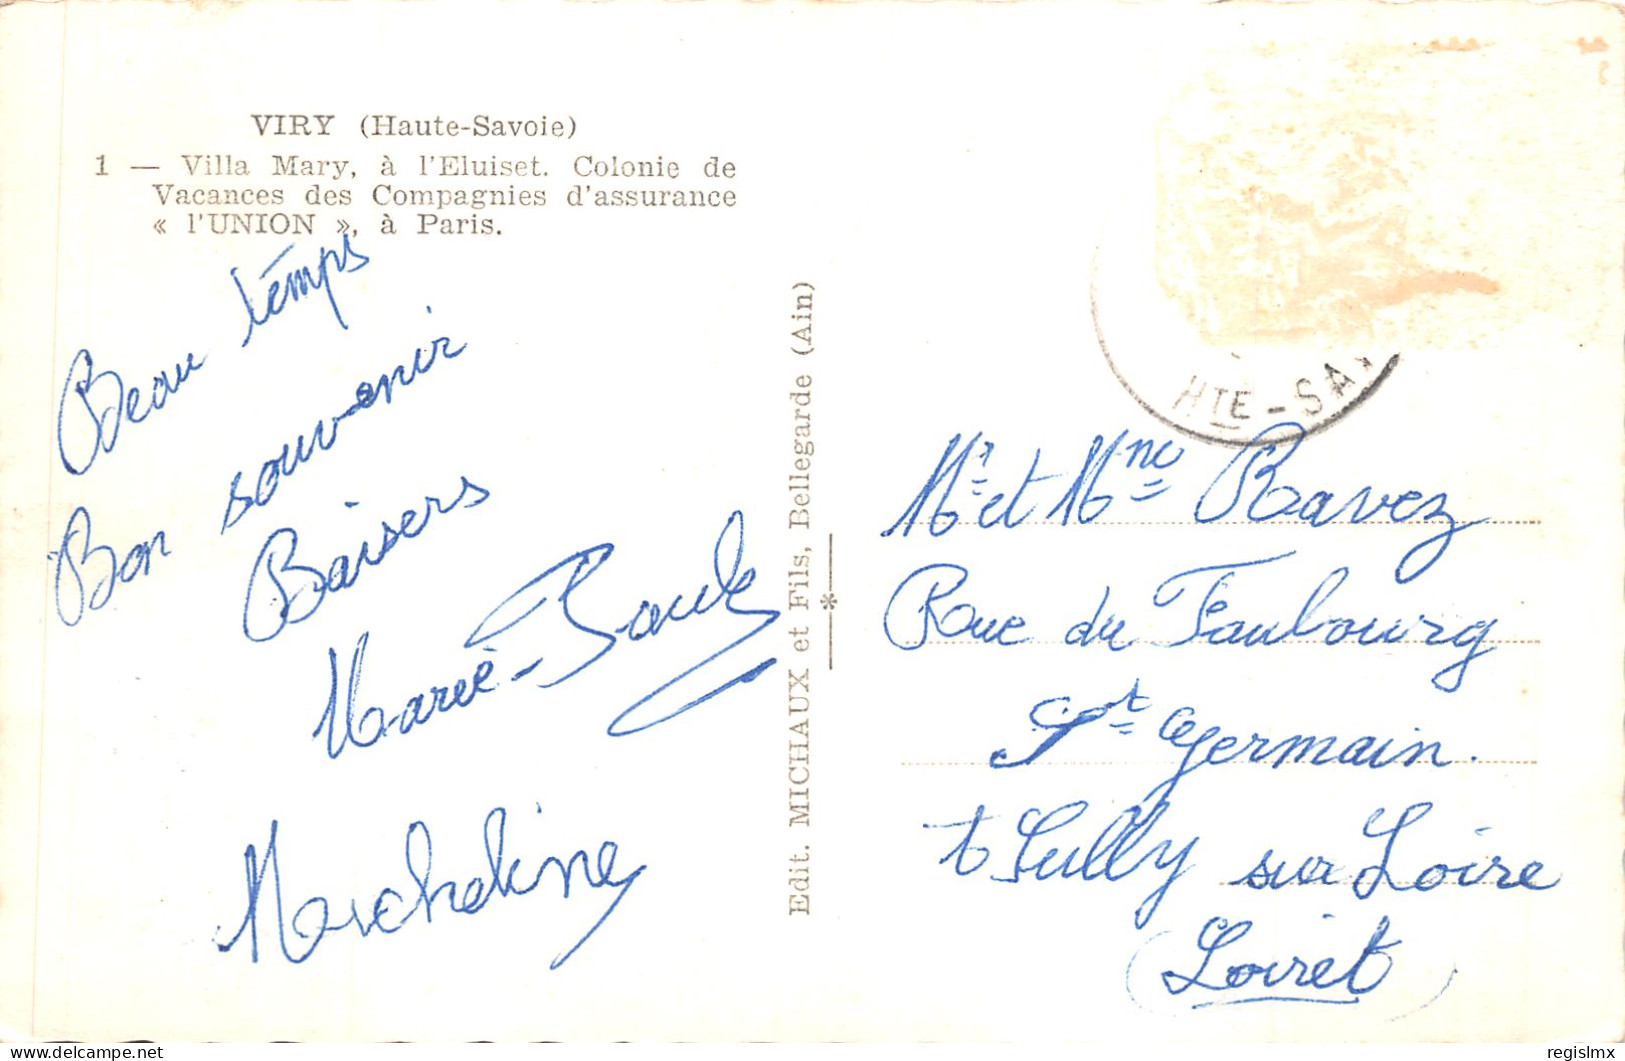 VIRY (Haute-Savoie)
1 — Villa Mary, à l'Eluiset. Colonie de
Vacances des Compagnies d'assurance
« l'UNION », à Paris.
Beau temps
Bon souvenir
Baisers
Marie-Paule
Micheline
Edit. MICHAUX et Fils, Bellegarde (Ain)
HTE-SAV
Mr et Mme Ravez
Rue du Faubourg
St Germain.
t Sully sur Loire
(Loiret)
delcampe.net
regislmx